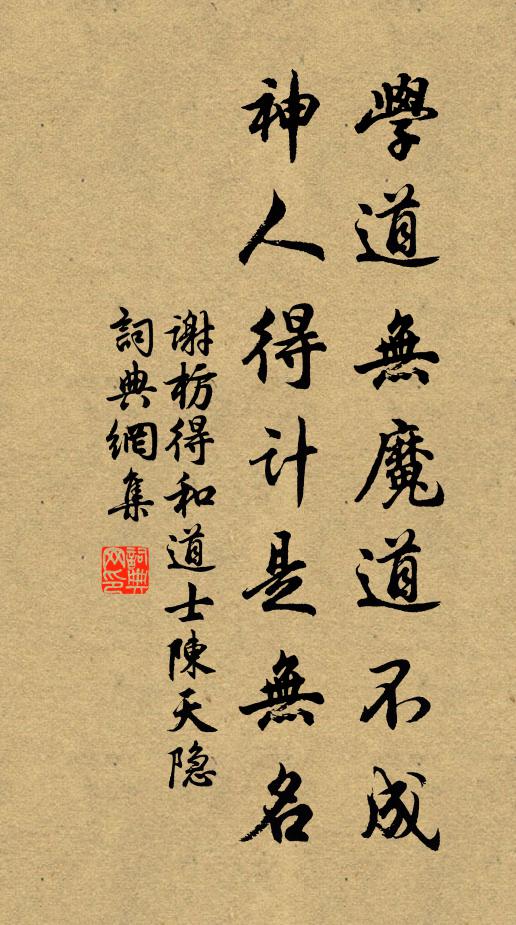 學道無魔道不成
神人得計是無名
謝枋得和道士陳天隐
詞典網集
詞典網印